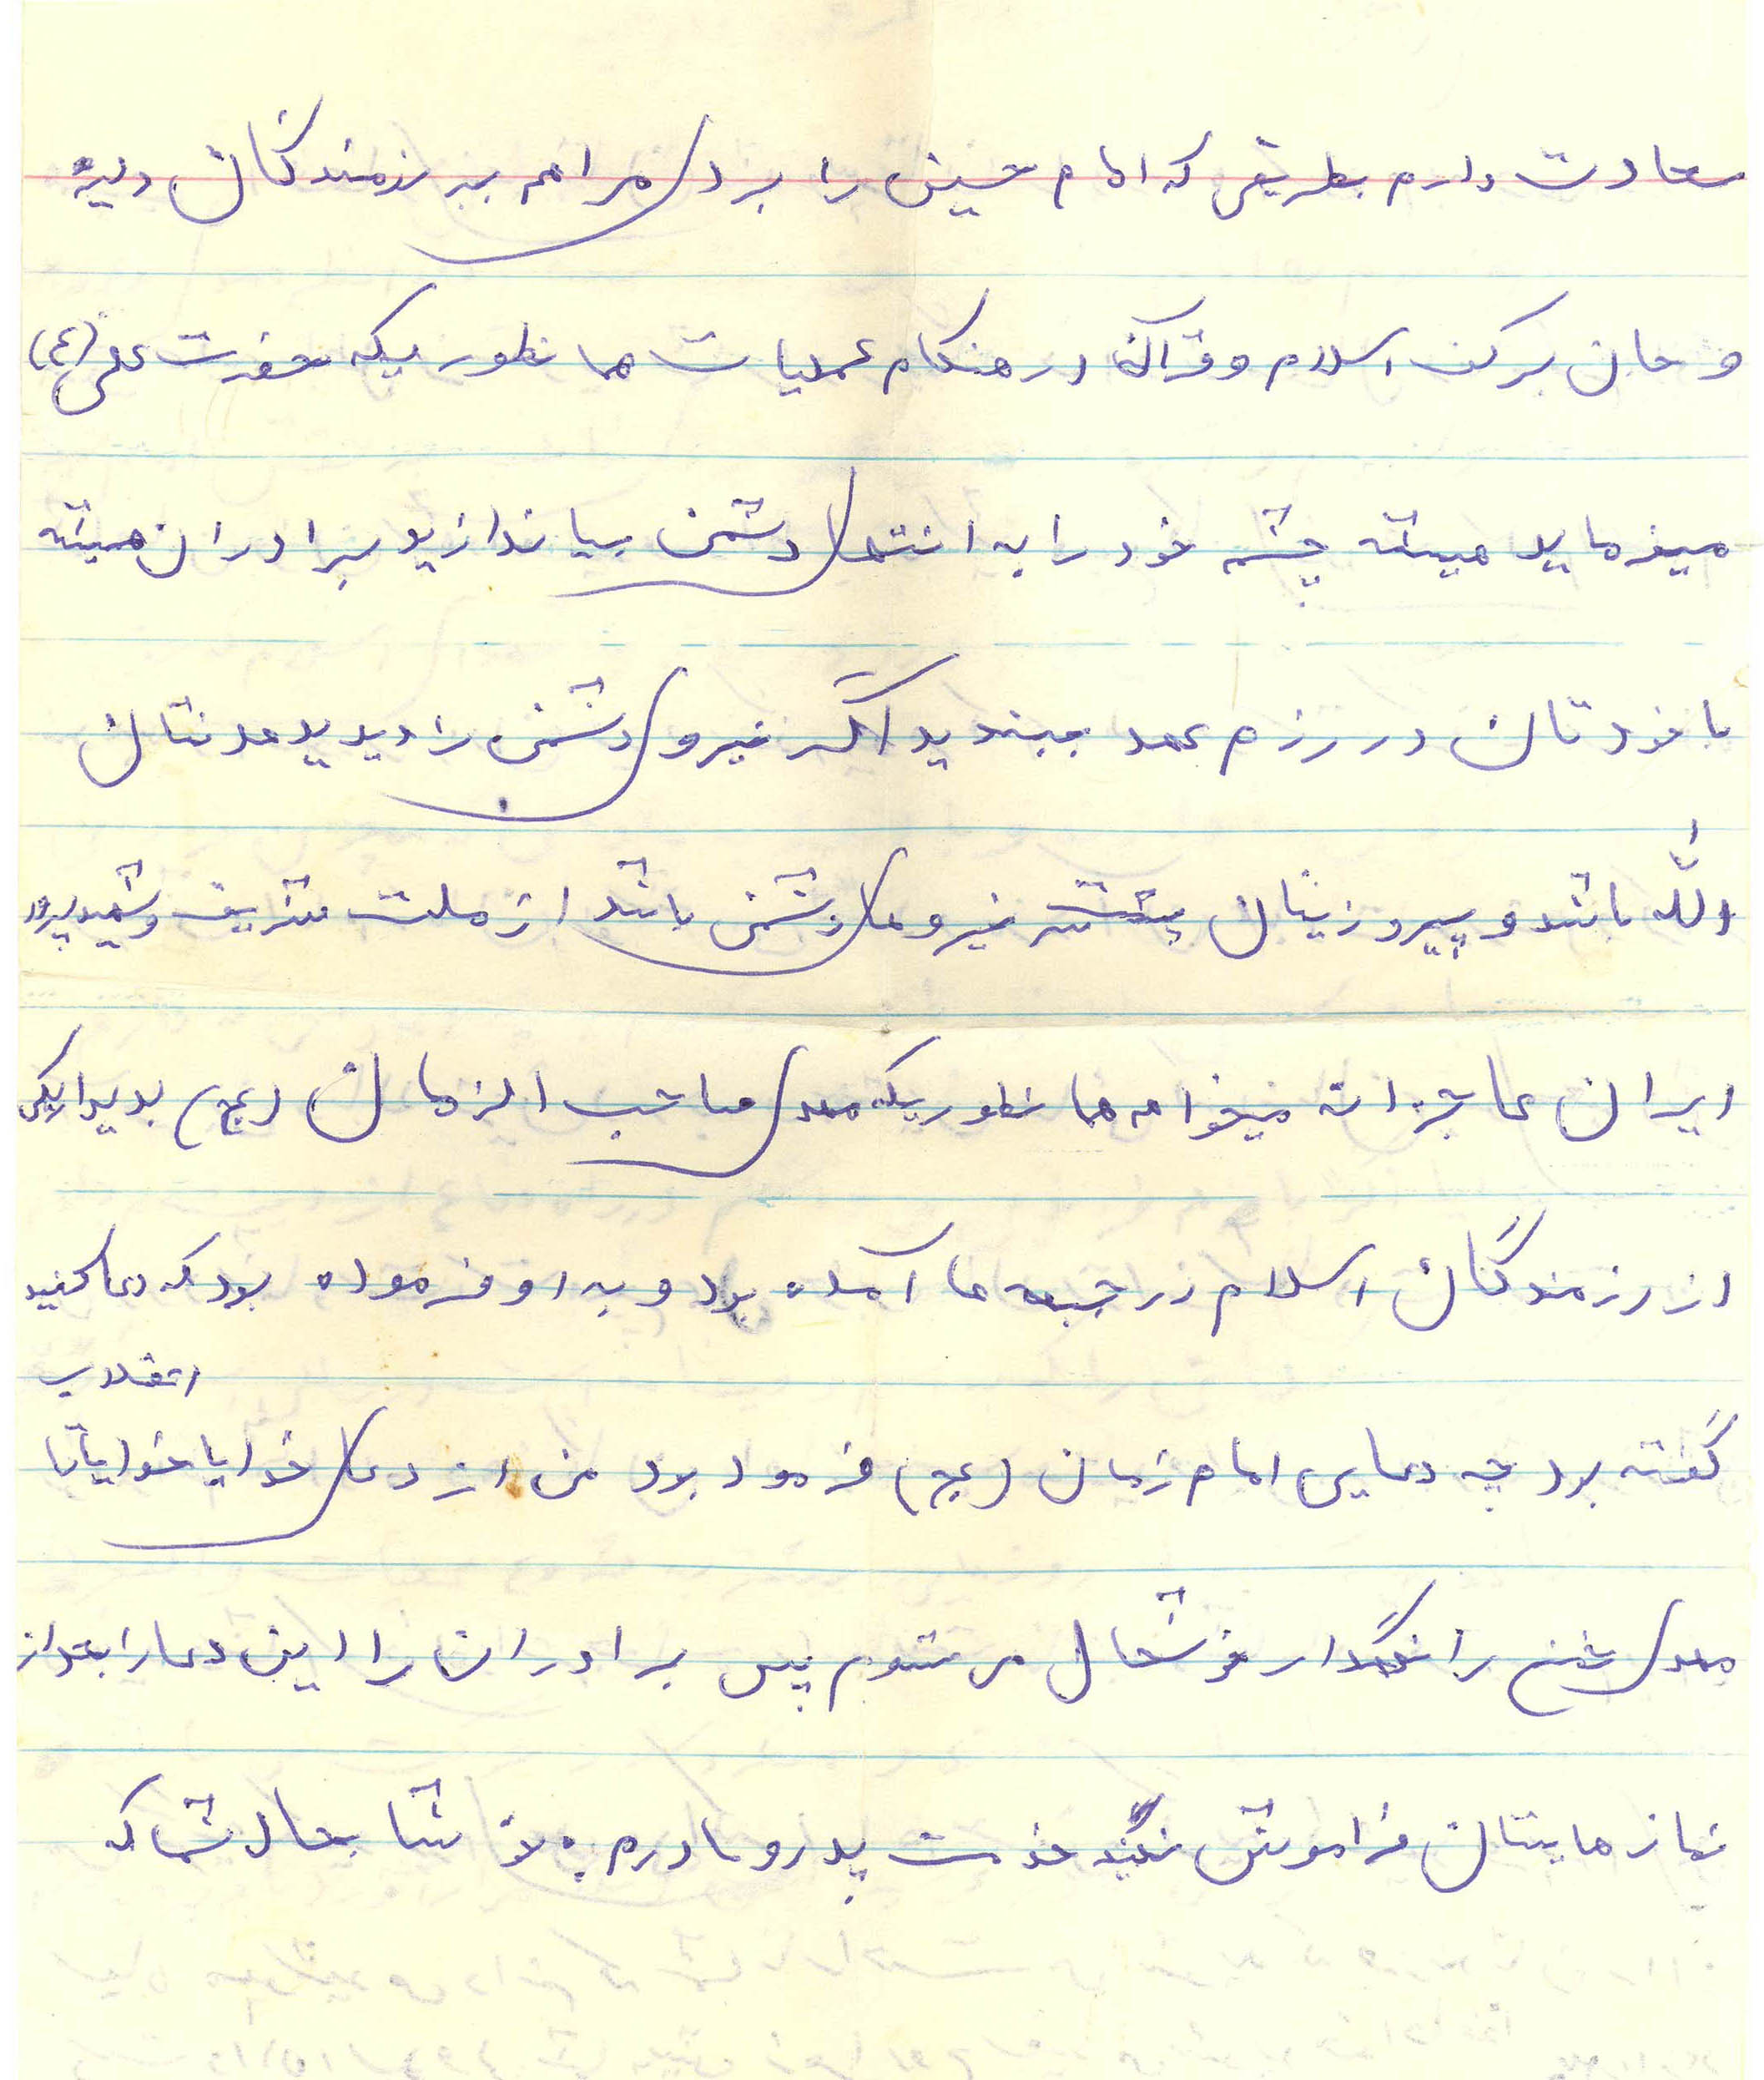 سعادت دارم بطریقی که امام حسین را برد مرامم به رزمندگان دلیر
و جان برکف اسلام و قرآن در هنگام عملیات همانطوریکه حضرت علی (ع)
میفرماید همیشه چشم خود را به انتهای دشمن بیاندازید برادران همیشه
با خودتان در رزم عهد ببندید اگر نیروی دشمن را دیدید هدفتان
الله باشد و پیروزیتان پشت سر نیروهای دشمن باشد از ملت شریف و شهیدپرور
ایران عاجزانه میخواهم همانطوریکه مهدی صاحب الزمان (عج) بدیدار یکی
از رزمندگان اسلام در جبهه ها آمده بود و به او فرموده بود که دعا کنید
گفته بود چه دعایی امام زمان (عج) فرمود بود من از دعای خدایا خدایا تا انقلاب
مهدی خمینی را نگهدار خوشحال می شوم پس برادران را این دعا را بعد از
نمازهایتان فراموش نکنید خدمت پدر و مادرم خوشا بحال شما که